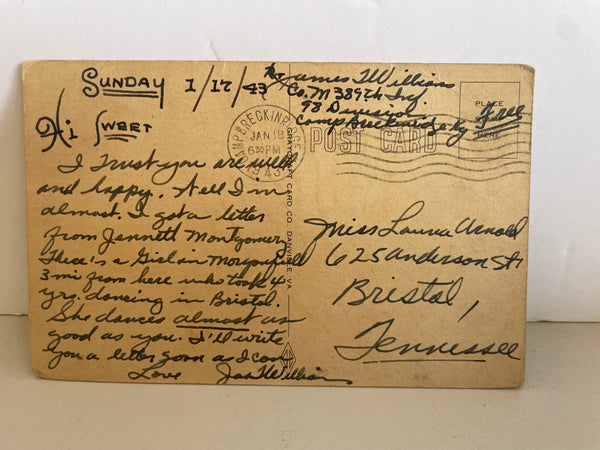 SUNDAY 1/17/43
Hi SWEET
I trust you are well
and happy. Well I'm
almost. I got a letter
from Jennett Montgomery
There's a Girl in Morganfield
3 mi from here who took 4
yrs. dancing in Bristol.
She dances almost as
good as you. I'll write
you a letter soon as I can
Love Jas T Williams
Pvt James T Williams
Co. M 389th Inf.
98 Division
Camp Breckinridge Ky
Free
PLACE
HERE
POST CARD
CAMP BRECKINRIDGE
JAN 18
6 30 PM
1943
GRAYCRAFT CARD CO. DANVILLE, VA.
Miss Louna Arnold
625 Anderson St.
Bristol,
Tennessee